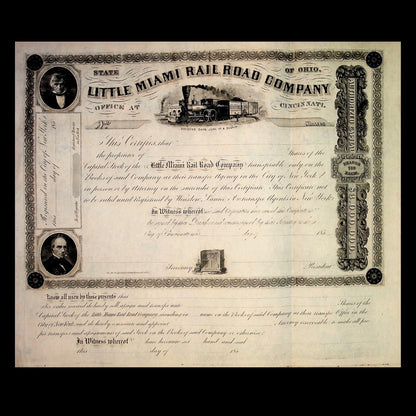 STATE OF OHIO.
LITTLE MIAMI RAIL ROAD COMPANY
OFFICE AT CINCINNATI.
No. Shares
This Certifies, that
the proprietor of Shares of the
Capital Stock of the Little Miami Rail Road Company transferable only on the
Books of said Company at their transfer Agency in the City of New York
in person or by Attorney on the surrender of this Certificate. This Certificate not
to be valid until registered by Winslow, Lanier & Co transfer Agents in New York.
In Witness whereof
City of Cincinnati day of 185
Secretary President
Registered in the City of New York
day of 185
Know all men by these presents that
for value received do hereby sell assign and transfer unto
Shares of the
Capital Stock of the Little Miami Rail Road Company standing in name on the Books of said Company at their Transfer Office in the
City of New York and do hereby constitute and appoint Attorney irrevocable to make all
transfers on the Books of said Company or otherwise
In Witness whereof have hereunto set hand and seal
this day of 185